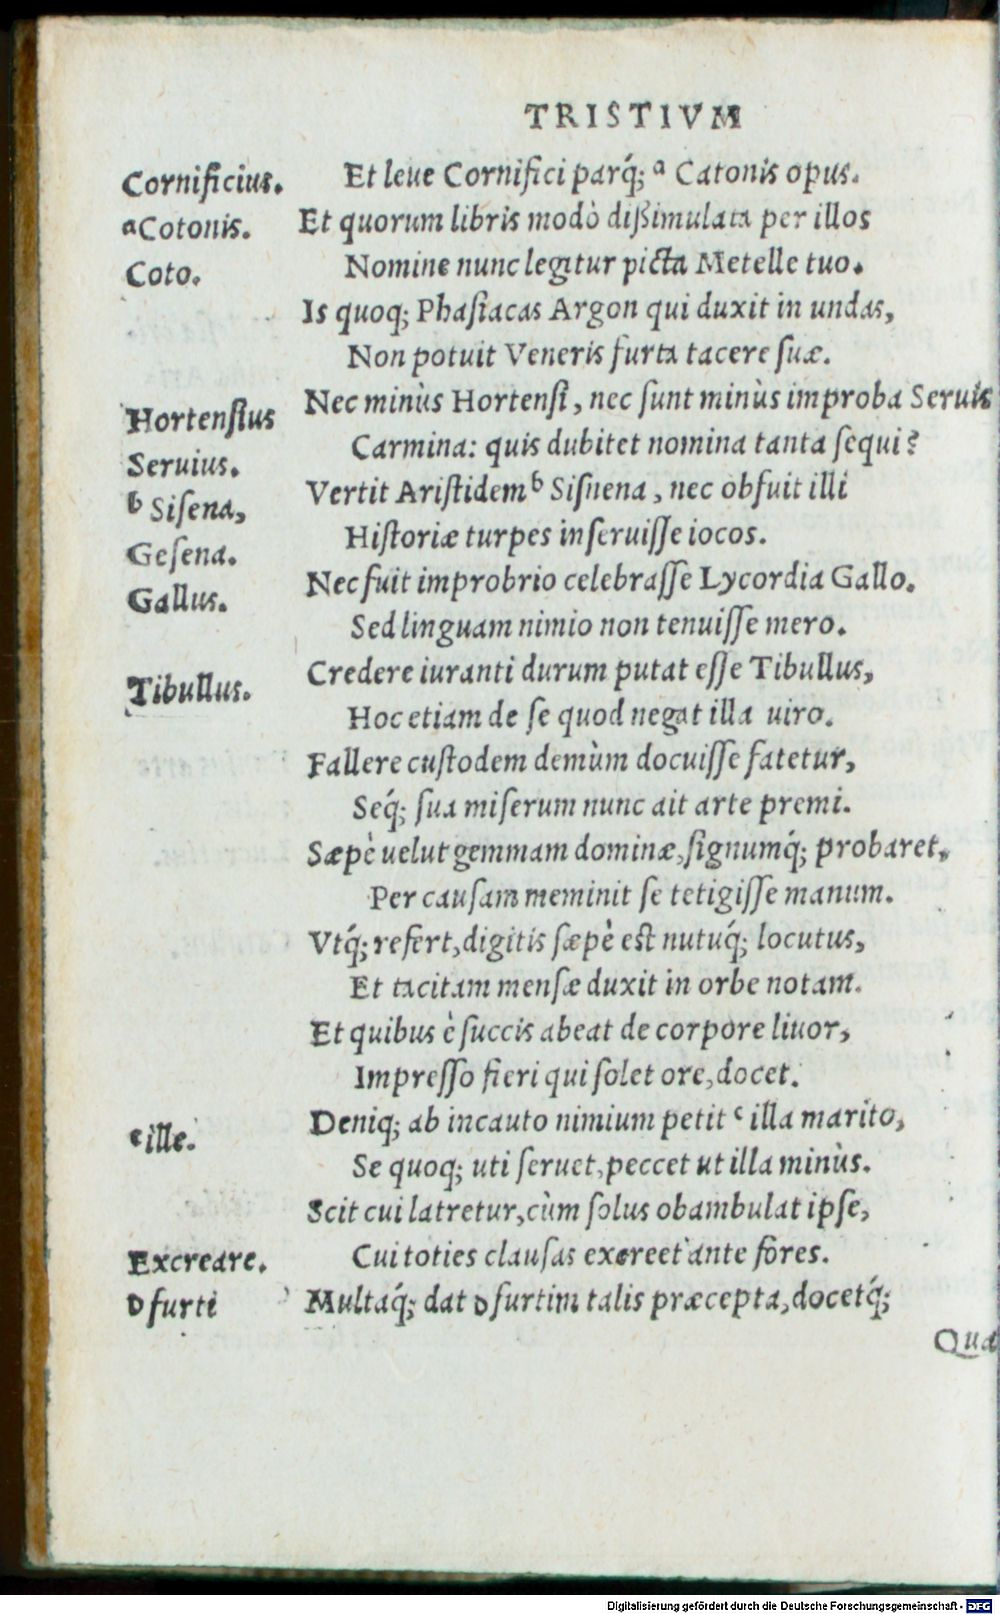 TRISTIVM
Cornificius.
Et leue Cornifici parq́; ᵃ Catonis opus.
ᵃCotonis.
Et quorum libris modò dißimulata per illos
Coto.
Nomine nunc legitur picta Metelle tuo.
Is quoq; Phasiacas Argon qui duxit in undas,
Non potuit Veneris furta tacere suæ.
Hortensius
Nec minùs Hortensi, nec sunt minùs improba Seruis
Seruius.
Carmina: quis dubitet nomina tanta sequi?
ᵇ Sisena,
Vertit Aristidem ᵇ Sisnena, nec obfuit illi
Gesena.
Historiæ turpes inseruisse iocos.
Gallus.
Nec fuit improbrio celebrasse Lycordia Gallo.
Sed linguam nimio non tenuisse mero.
Tibullus.
Credere iuranti durum putat esse Tibullus,
Hoc etiam de se quod negat illa uiro.
Fallere custodem demùm docuisse fatetur,
Seq́; sua miserum nunc ait arte premi.
Sæpè uelut gemmam dominæ, signumq́; probaret,
Per causam meminit se tetigisse manum.
Vtq́; refert, digitis sæpè est nutuq́; locutus,
Et tacitam mensæ duxit in orbe notam.
Et quibus è succis abeat de corpore liuor,
Impresso fieri qui solet ore, docet.
ᶜille.
Deniq; ab incauto nimium petit ᶜ illa marito,
Se quoq; uti seruet, peccet ut illa minùs.
Scit cui latretur, cùm solus obambulat ipse,
Excreare.
Cui toties clausas exereet ante fores.
ᴅ furti
Multaq́; dat ᴅ furtim talis præcepta, docetq́;
Qua
Digitalisierung gefördert durch die Deutsche Forschungsgemeinschaft - DFG